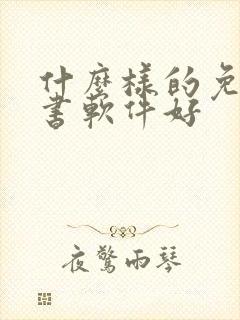 什麼樣的免
書軟件好
夜驚雨琴